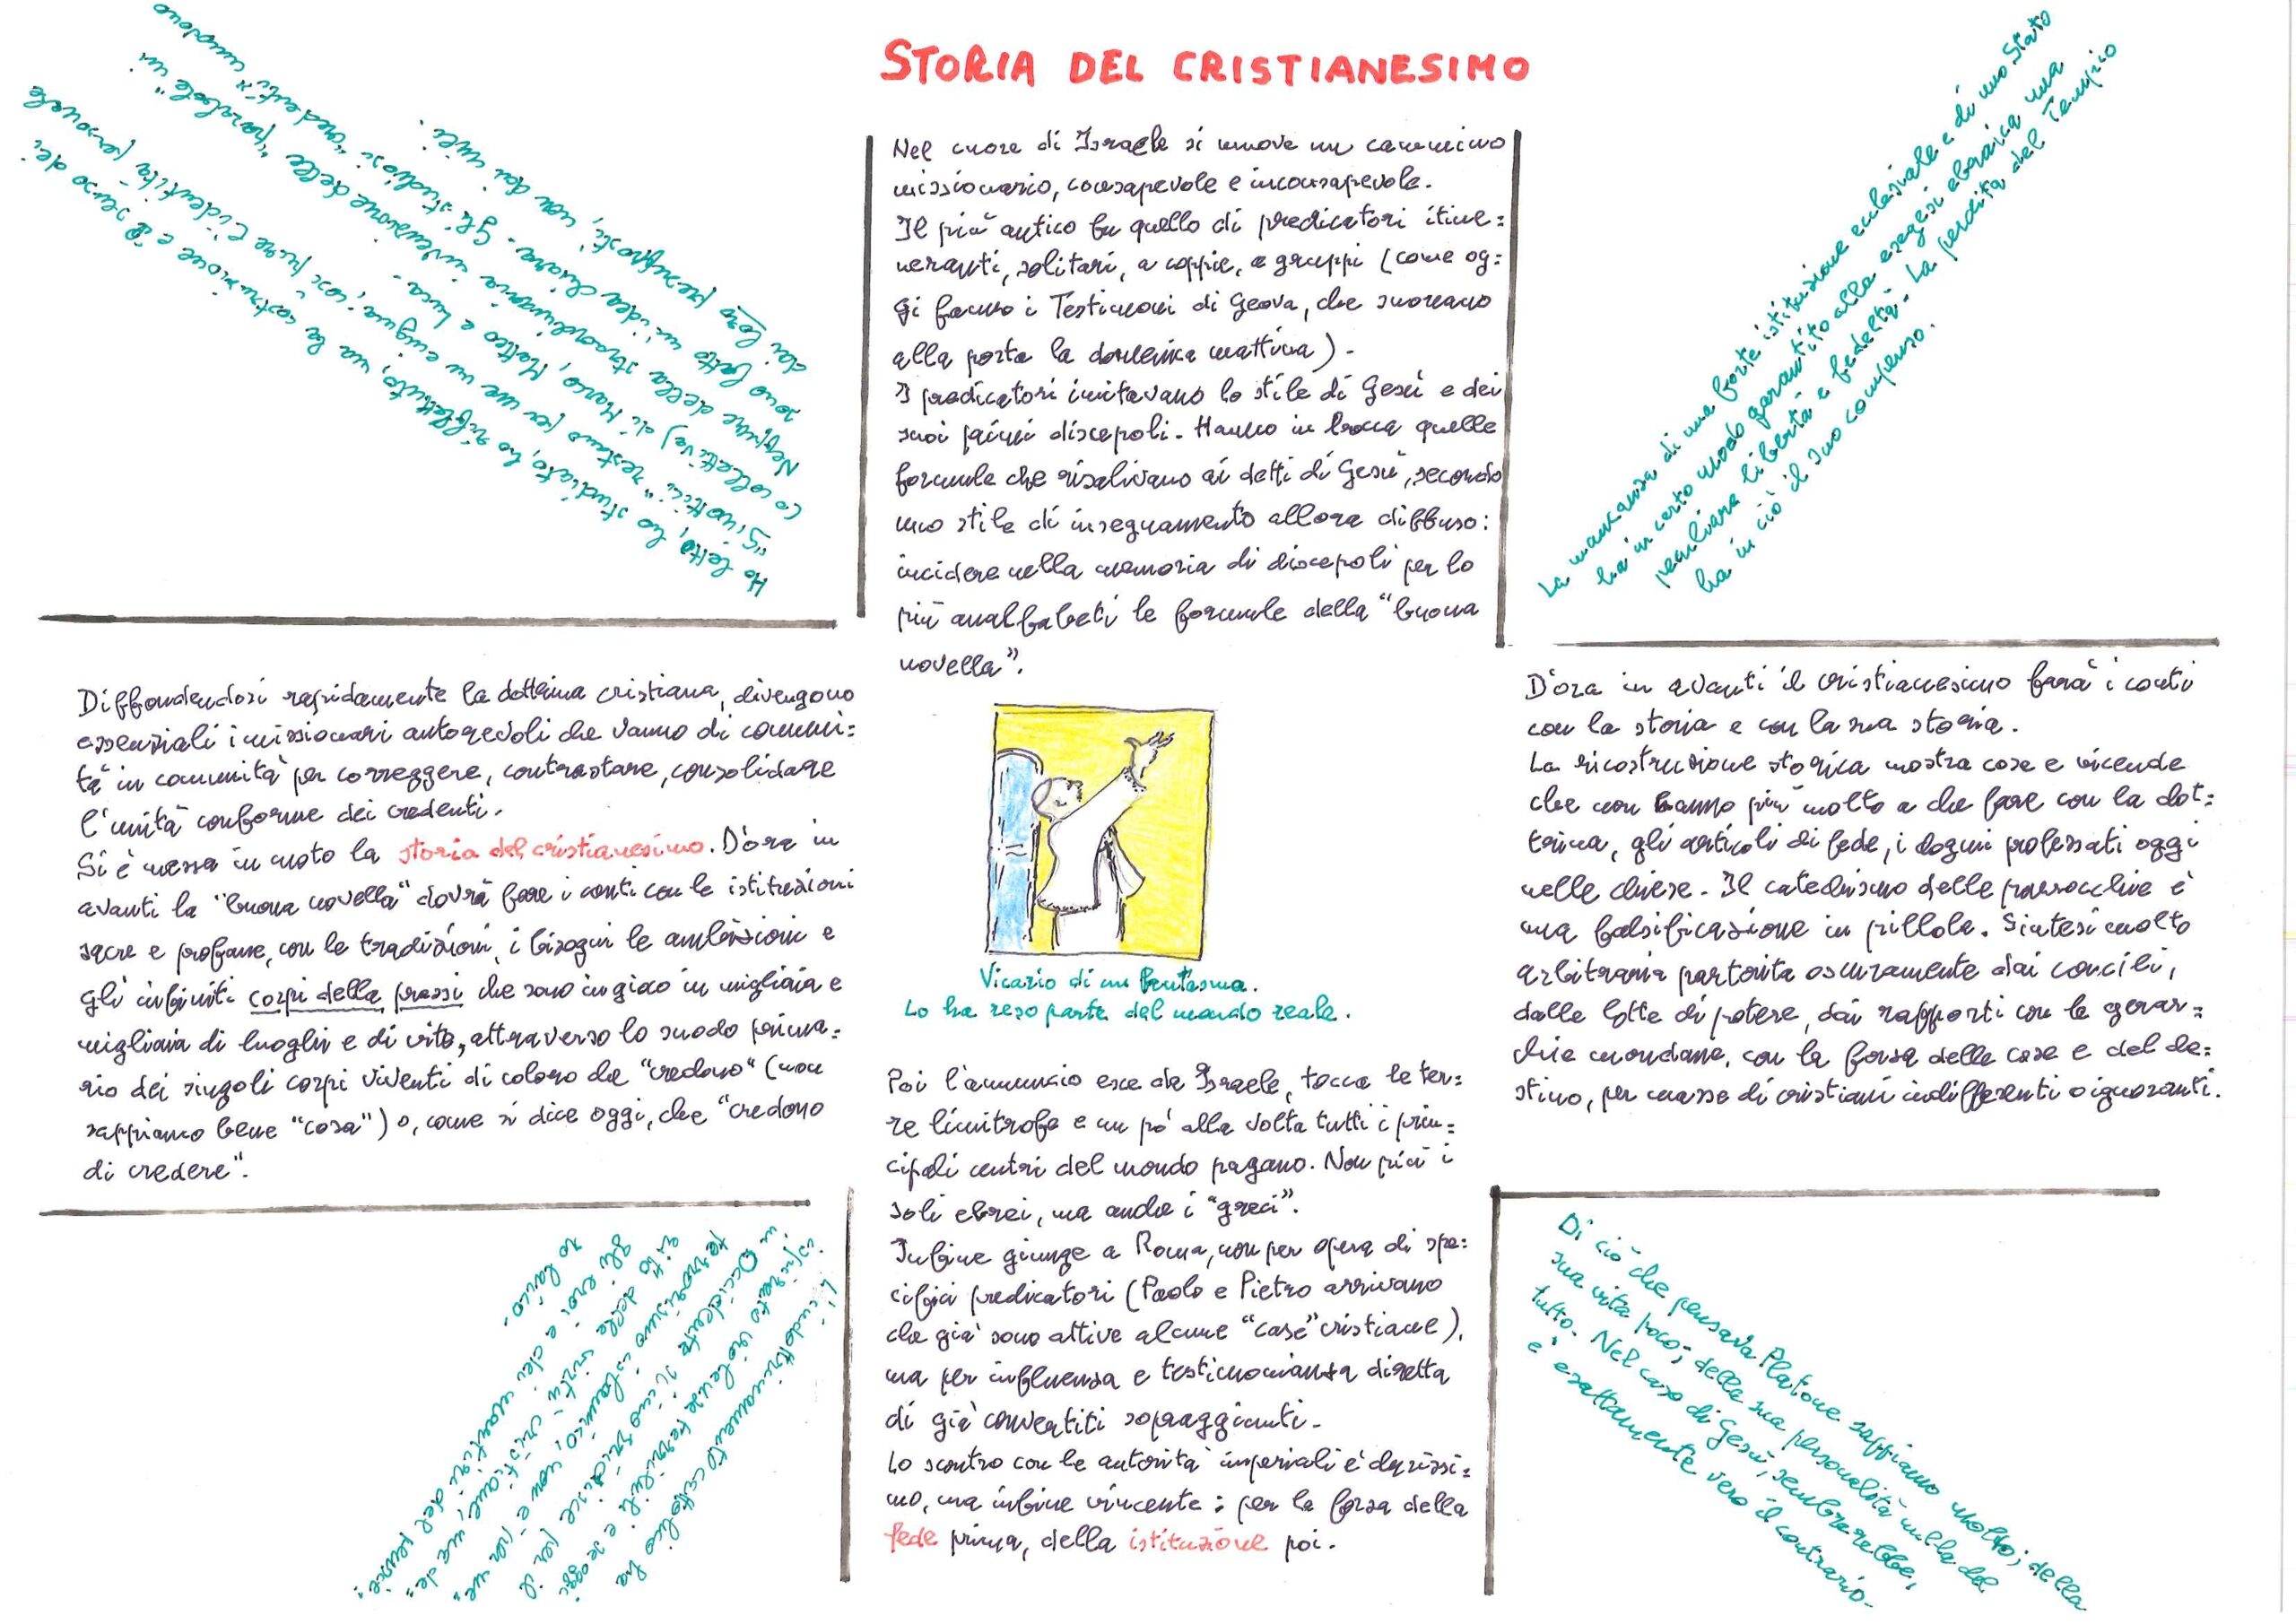 STORIA DEL CRISTIANESIMO
Nel cuore di Israele si muove un cammino
missionario, consapevole e inconsapevole.
Il più antico fu quello di predicatori itine=
neranti, solitari, a coppie, a gruppi (come og=
gi fanno i Testimoni di Geova, che suonano
alla porta la domenica mattina).
I predicatori imitavano lo stile di Gesù e dei
suoi primi discepoli. Hanno in bocca quelle
formule che risalivano ai detti di Gesù, secondo
uno stile di insegnamento allora diffuso:
incidere nella memoria di discepoli per lo
più analfabeti le formule della "buona
novella".
Vicario di un fantasma.
Lo ha reso parte del mondo reale.
Poi l'annuncio esce da Israele, tocca le ter=
re limitrofe e un pò alla volta tutti i prin=
cipali centri del mondo pagano. Non più i
soli ebrei, ma anche i "greci".
Infine giunge a Roma, non per opera di spe=
cifici predicatori (Paolo e Pietro arrivano
che già sono attive alcune "case" cristiane),
ma per influenza e testimonianza diretta
di già convertiti sopraggiunti.
Lo scontro con le autorità imperiali è durissi=
mo, ma infine vincente: per la forza della
fede prima, della istituzione poi.
Ho letto, ho studiato, ho riflettuto, ma la costruzione e il senso dei
"Sinottici" restano per me un enigma, così pure l'identità personale
(o collettiva) di Marco, Matteo e Luca.
Neppure della straordinaria invenzione delle "parabole" mi
sono fatto un'idea chiara. Gli studiosi "credenti" muovono
dai loro presupposti, non dai miei.
Diffondendosi rapidamente la dottrina cristiana, divengono
essenziali i missionari autorevoli che vanno di comuni=
tà in comunità per correggere, contrastare, consolidare
l'unità conforme dei credenti.
Si è messa in moto la storia del cristianesimo. D'ora in
avanti la "buona novella" dovrà fare i conti con le istituzioni
sacre e profane, con le tradizioni, i bisogni le ambizioni e
gli infiniti corpi della prassi che sono in gioco in migliaia e
migliaia di luoghi e di vite, attraverso lo snodo prima=
rio dei singoli corpi viventi di coloro che "credono" (non
sappiamo bene "cosa") o, come si dice oggi, che "credono
di credere".
L'indottrinamento cattolico ha
ispirato violenze terribili e se oggi
in Occidente si inorridisce per il
terrorismo islamico, non è per me=
rito delle virtù cristiane, ma de=
gli eroi e dei martiri del pensie=
ro laico.
La mancanza di una forte istituzione ecclesiale e di uno Stato
ha in certo modo garantito alla esegesi ebraica una
peculiare libertà e fedeltà. La perdita del Tempio
ha in ciò il suo compenso.
D'ora in avanti il cristianesimo farà i conti
con la storia e con la sua storia.
La ricostruzione storica mostra cose e vicende
che non hanno più molto a che fare con la dot=
trina, gli articoli di fede, i dogmi professati oggi
nelle chiese. Il catechismo delle parrocchie è
una falsificazione in pillole. Sintesi molto
arbitraria partorita oscuramente dai concili,
dalle lotte di potere, dai rapporti con le gerar=
chie mondane, con la forza delle cose e del de=
stino, per masse di cristiani indifferenti o ignoranti.
Di ciò che pensava Platone sappiamo molto; della
sua vita poco; della sua personalità nulla del
tutto. Nel caso di Gesù, sembrerebbe,
è esattamente vero il contrario.